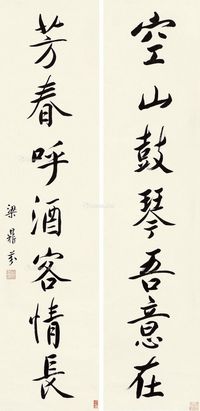 空山鼓琴吾意在
芳春呼酒客情長
梁鼎芬